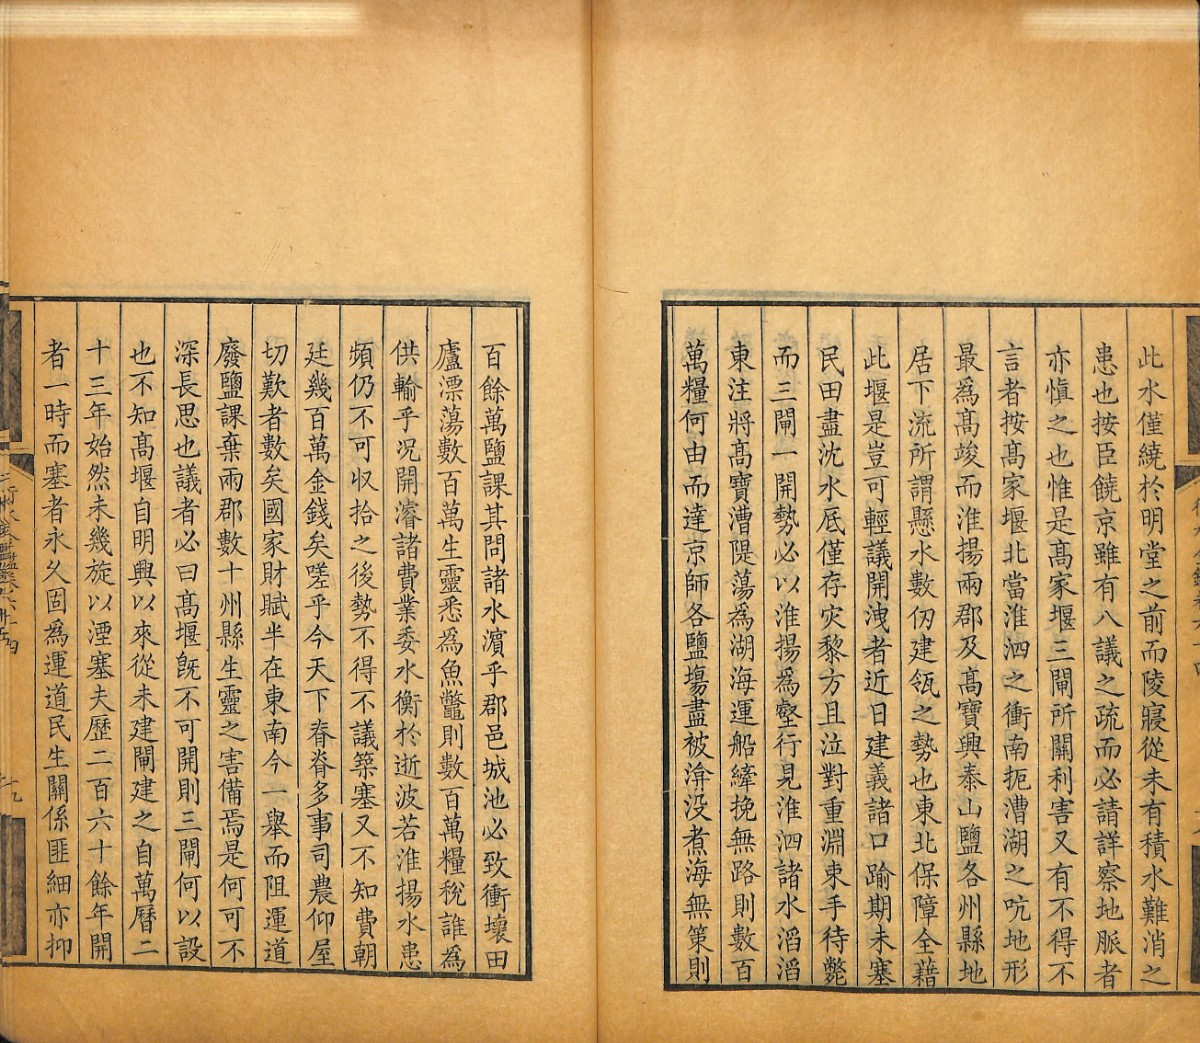 此水僅繞於明堂之前而陵寢從未有積水難消之
患也按臣饒京雖有八議之疏而必請詳察地脈者
亦慎之也惟是髙家堰三閘所關利害又有不得不
言者按髙家堰北當淮泗之衝南扼漕湖之吭地形
最爲髙竣而淮揚兩郡及髙寶興泰山鹽各州縣地
居下流所謂懸水數仞建瓴之勢也東北保障全藉
此堰是豈可輕議開洩者近日建義諸口踰期未塞
民田盡沈水底僅存灾黎方且泣對重淵束手待斃
而三閘一開勢必以淮揚爲壑行見淮泗諸水滔滔
東注將髙寶漕隄蕩爲湖海運船縴挽無路則數百
萬糧何由而達京師各鹽塲盡被渰没煮海無策則
百餘萬鹽課其問諸水濱乎郡邑城池必致衝壞田
廬漂蕩數百萬生靈悉爲魚鼈則數百萬糧稅誰爲
供輸乎况開濬諸費業委水衡於逝波若淮揚水患
頻仍不可収拾之後勢不得不議築塞又不知費朝
廷幾百萬金錢矣嗟乎今天下脊脊多事司農仰屋
切歎者數矣國家財賦半在東南今一舉而阻運道
廢鹽課棄兩郡數十州縣生靈之害備焉是何可不
深長思也議者必曰髙堰旣不可開則三閘何以設
也不知髙堰自明興以來從未建閘建之自萬曆二
十三年始然未幾旋以湮塞夫歷二百六十餘年開
者一時而塞者永久固爲運道民生關係匪細亦抑